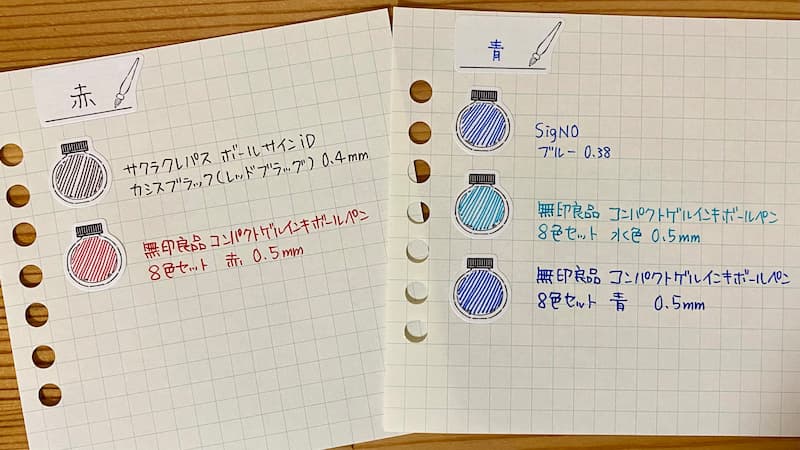 赤
サクラクレパス ボールサインiD
カシスブラック(レッドブラック) 0.4mm
無印良品 コンパクトゲルインキボールペン
8色セット 赤 0.5mm
青
SigNO
ブルー 0.38
無印良品 コンパクトゲルインキボールペン
8色セット 水色 0.5mm
無印良品 コンパクトゲルインキボールペン
8色セット 青 0.5mm